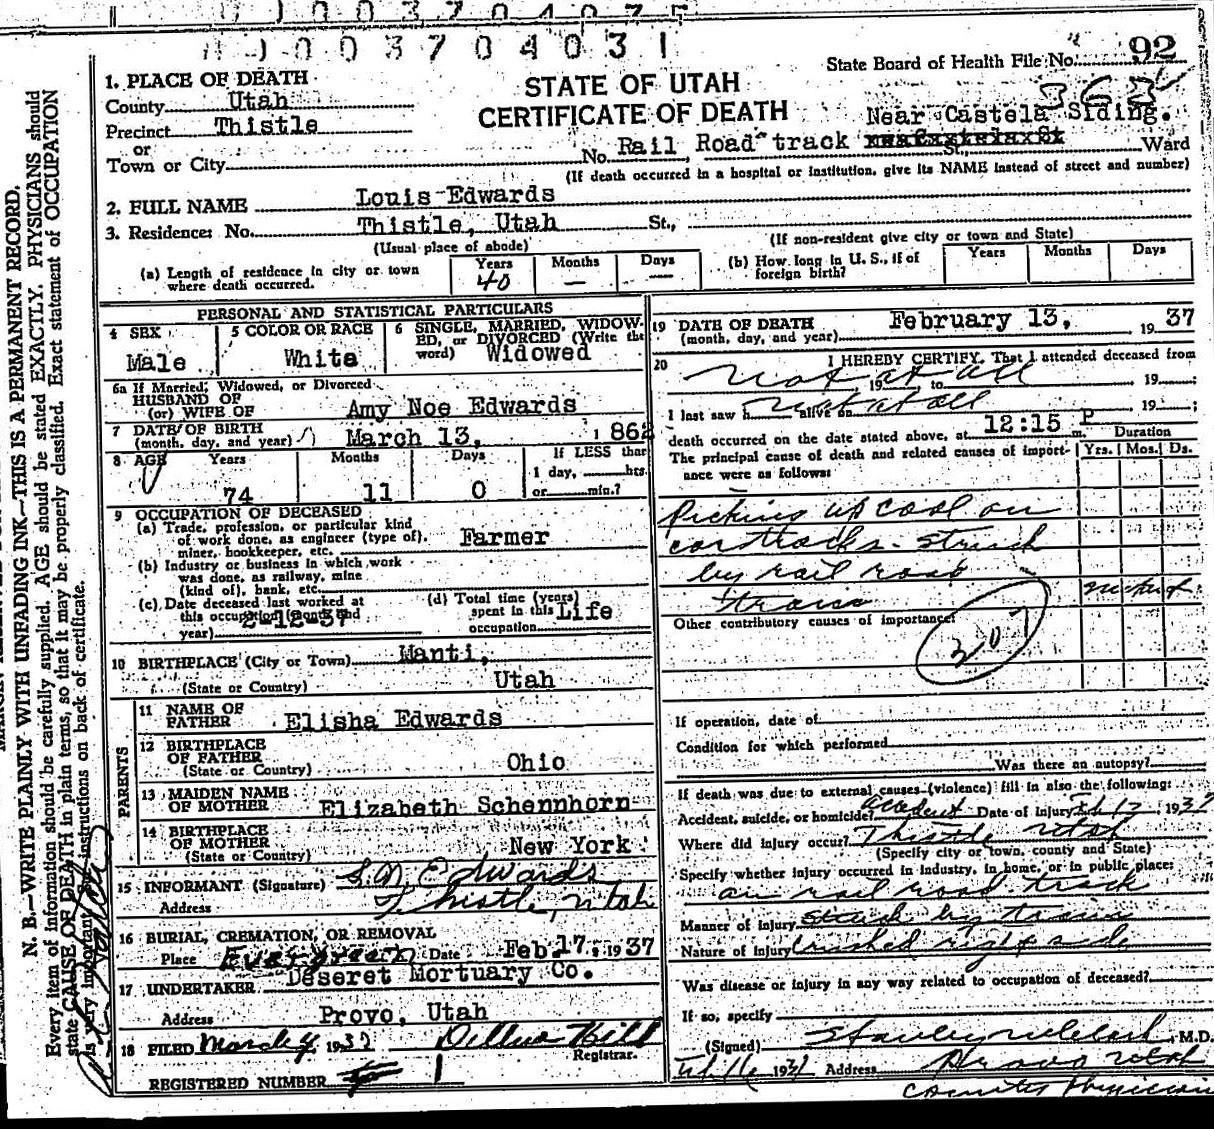 0003704031
State Board of Health File No. 92
363
1. PLACE OF DEATH
County Utah
Precinct Thistle
or
Town or City
STATE OF UTAH
CERTIFICATE OF DEATH
Near Castela Siding.
No. Rail Road track St., Ward
(If death occurred in a hospital or institution, give its NAME instead of street and number)
2. FULL NAME Louis Edwards
3. Residence: No. Thistle, Utah St.,
(Usual place of abode)
(If non-resident give city or town and State)
(a) Length of residence in city or town where death occurred.
Years 40 Months — Days —
(b) How long in U. S., if of foreign birth?
Years Months Days
PERSONAL AND STATISTICAL PARTICULARS
4 SEX Male
5 COLOR OR RACE White
6 SINGLE, MARRIED, WIDOWED, or DIVORCED (Write the word) Widowed
6a If Married, Widowed, or Divorced
HUSBAND OF
(or) WIFE OF Amy Noe Edwards
7 DATE OF BIRTH
(month, day, and year) March 13, 1862
8 AGE Years 74 Months 11 Days 0
If LESS than 1 day, hrs. or min.?
9 OCCUPATION OF DECEASED
(a) Trade, profession, or particular kind
of work done, as engineer (type of),
miner, bookkeeper, etc. Farmer
(b) Industry or business in which work
was done, as railway, mine
(kind of), bank, etc.
(c) Date deceased last worked at
this occupation (month and
year) 2-12-37
(d) Total time (years)
spent in this
occupation Life
10 BIRTHPLACE (City or Town) Manti,
(State or Country) Utah
PARENTS
11 NAME OF FATHER Elisha Edwards
12 BIRTHPLACE OF FATHER
(State or Country) Ohio
13 MAIDEN NAME OF MOTHER Elizabeth Schennhorn
14 BIRTHPLACE OF MOTHER
(State or Country) New York
15 INFORMANT (Signature) S.N. Edwards
Address Thistle, Utah
16 BURIAL, CREMATION, OR REMOVAL
Place Evergreen Date Feb. 17, 1937
17 UNDERTAKER Deseret Mortuary Co.
Address Provo, Utah
18 FILED March 4, 1937
Registrar.
REGISTERED NUMBER 1
19 DATE OF DEATH
(month, day, and year) February 13, 1937
20 I HEREBY CERTIFY, That I attended deceased from
Not at all, 19 , to 19 ;
I last saw h not at all alive on 19 ;
death occurred on the date stated above, at 12:15 P m. Duration
The principal cause of death and related causes of importance were as follows: Yrs. Mos. Ds.
Picking up coal on
car tracks - struck
by rail road
train
Other contributory causes of importance:
207
If operation, date of
Condition for which performed
Was there an autopsy?
If death was due to external causes (violence) fill in also the following:
Accident, suicide, or homicide? Accident Date of Injury 1937
Where did injury occur? Thistle Utah
(Specify city or town, county and State)
Specify whether injury occurred in industry, in home, or in public place:
on rail road track
Manner of injury struck by train
Nature of injury crushed right side
Was disease or injury in any way related to occupation of deceased?
If so, specify
(Signed) M.D.
Address Provo Utah
County Physician
N. B.—WRITE PLAINLY WITH UNFADING INK—THIS IS A PERMANENT RECORD.
Every item of information should be carefully supplied. AGE should be stated EXACTLY. PHYSICIANS should
state CAUSE OF DEATH in plain terms, so that it may be properly classified. Exact statement of OCCUPATION
is very important. See instructions on back of certificate.